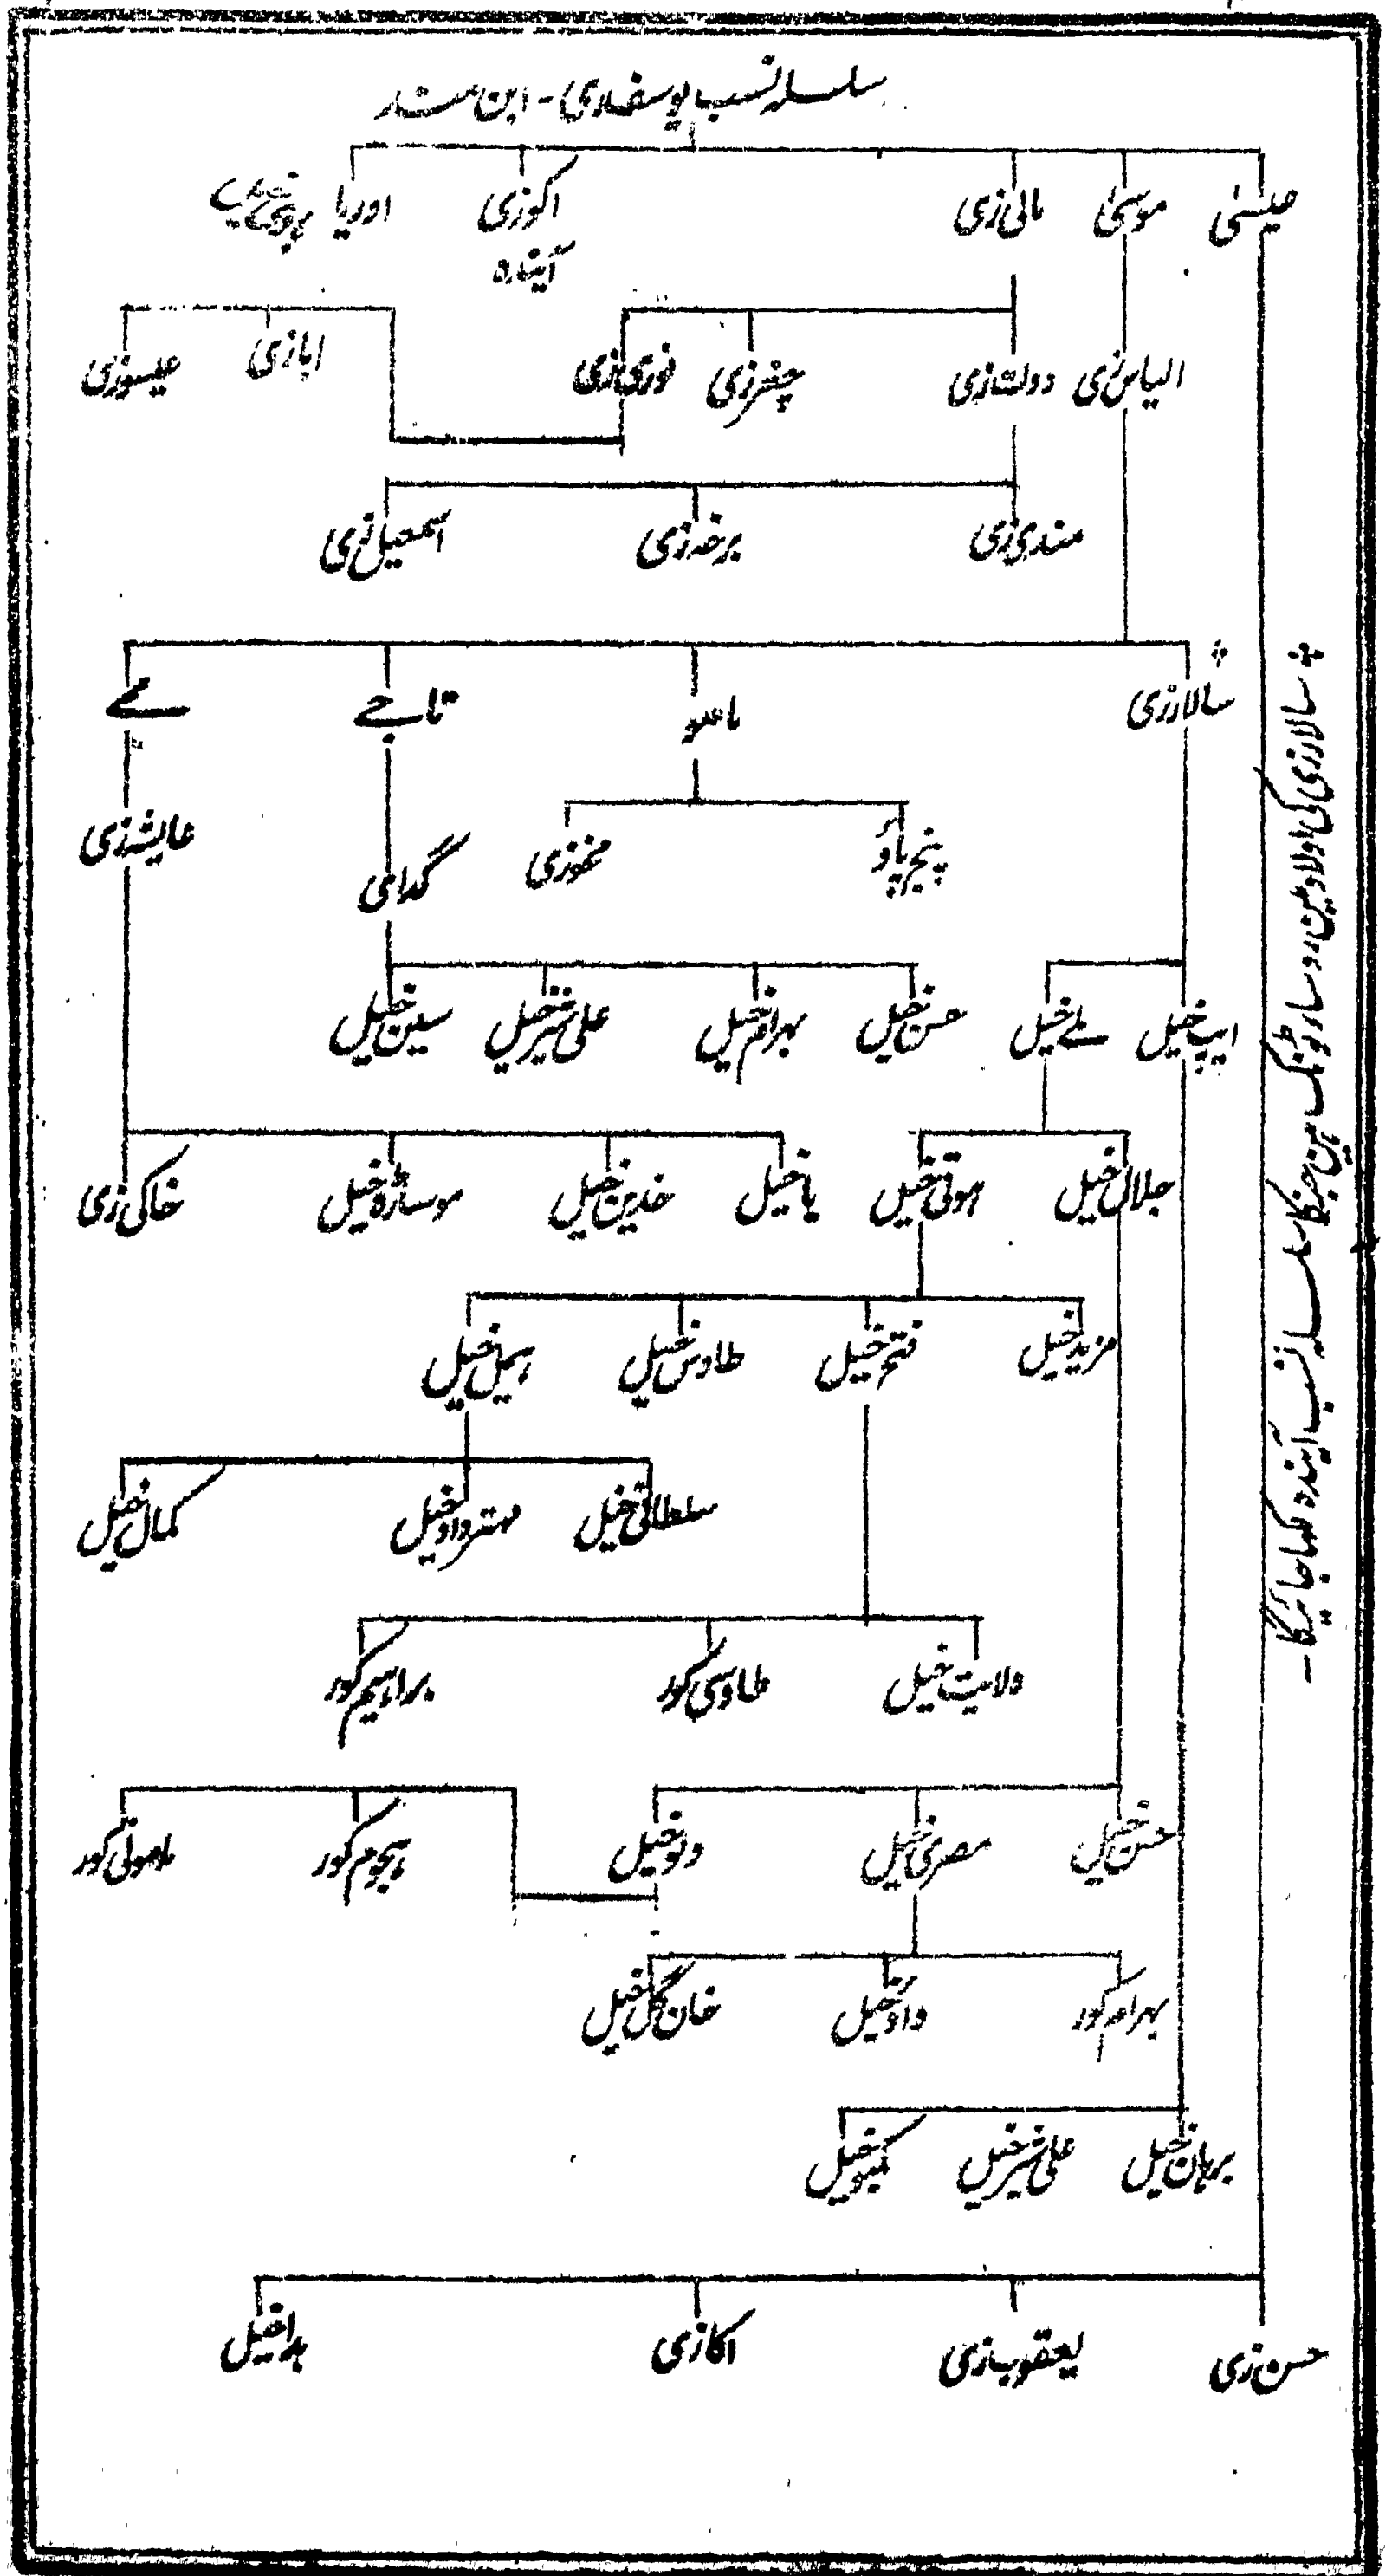 سلسلہ نسب یوسفزی - ابن مندر
عیسیٰ موسیٰ مالی زی اکوزی اوریا
آیندہ
الیاس زی دولت زی چغرزی نوری زی ابازی عیسوزی
مندی زی برخہ زی اسمعیل زی
سالارزی مامو تاجے
پنجپاؤ مخوزی گدای عایشہ زی
ایپ خیل ملے خیل حسن خیل بہرام خیل علی شیر خیل سین خیل
جلال خیل ہوتی خیل پاخیل خدین خیل موساڑہ خیل خاکی زی
مزید خیل فتح خیل طاوس خیل ہیمل خیل
سلطان خیل مہتر داد خیل کمال خیل
ولایت خیل طاوسی کور براہیم کور
حسن خیل مصری خیل دلو خیل ہجوم کور ماموتی کور
بہرام کور داؤد خیل خان گل خیل
برہان خیل علی شیر خیل کمبو خیل
حسن زی یعقوب زی اکازی مداخیل
سالارزی کی اولاد مین روسار ٹونک ہین جنکا سلسلہ نسب آیندہ لکھا جائیگا -